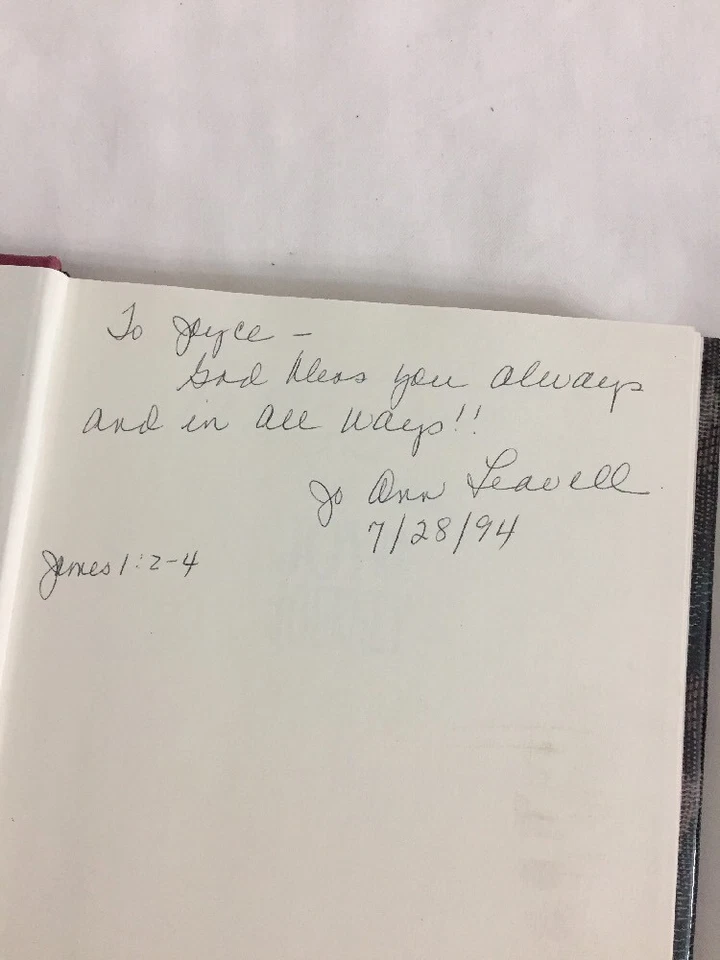 To Joyce -
God bless you always
and in all ways!!
Jo Ann Leavell
7/28/94
James 1:2-4